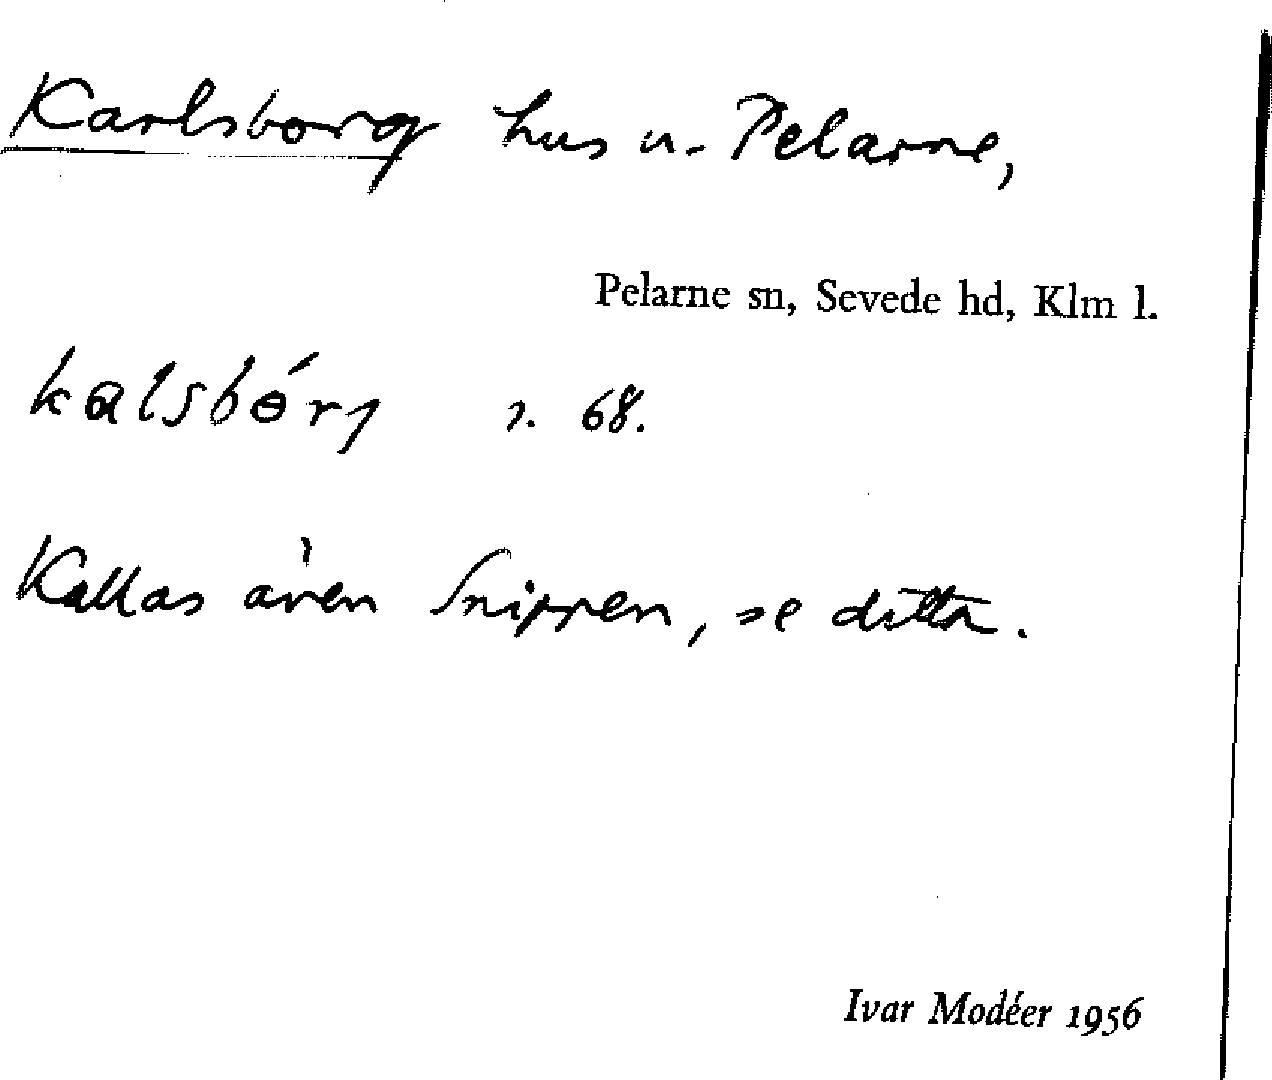 Karlsborg hus u. Pelarne,
Pelarne sn, Sevede hd, Klm l.
kalsbɵ́rj 68.
Kallas även Snippen, se detta.
Ivar Modéer 1956